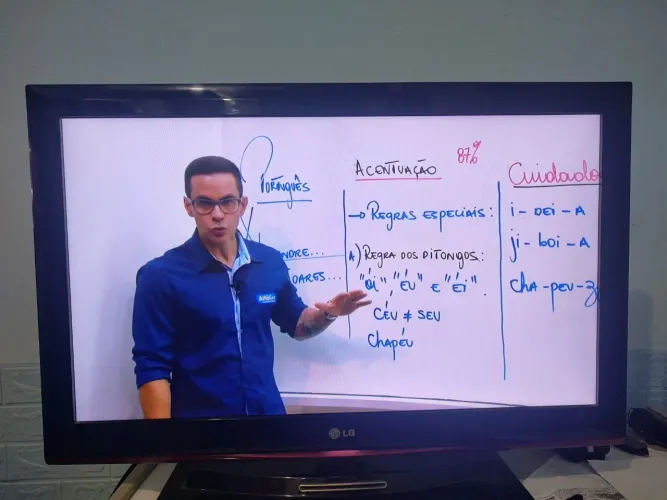 PORTUGUÊS
NDRE...
OARES...
ACENTUAÇÃO
87%
→ REGRAS ESPECIAIS:
A) REGRA DOS DITONGOS:
"ÓI", "ÉU" E "ÉI".
CÉU ≠ SEU
CHAPÉU
Cuidado
i - DEI - A
ji - BOI - A
CHA - PEU - Z
LG